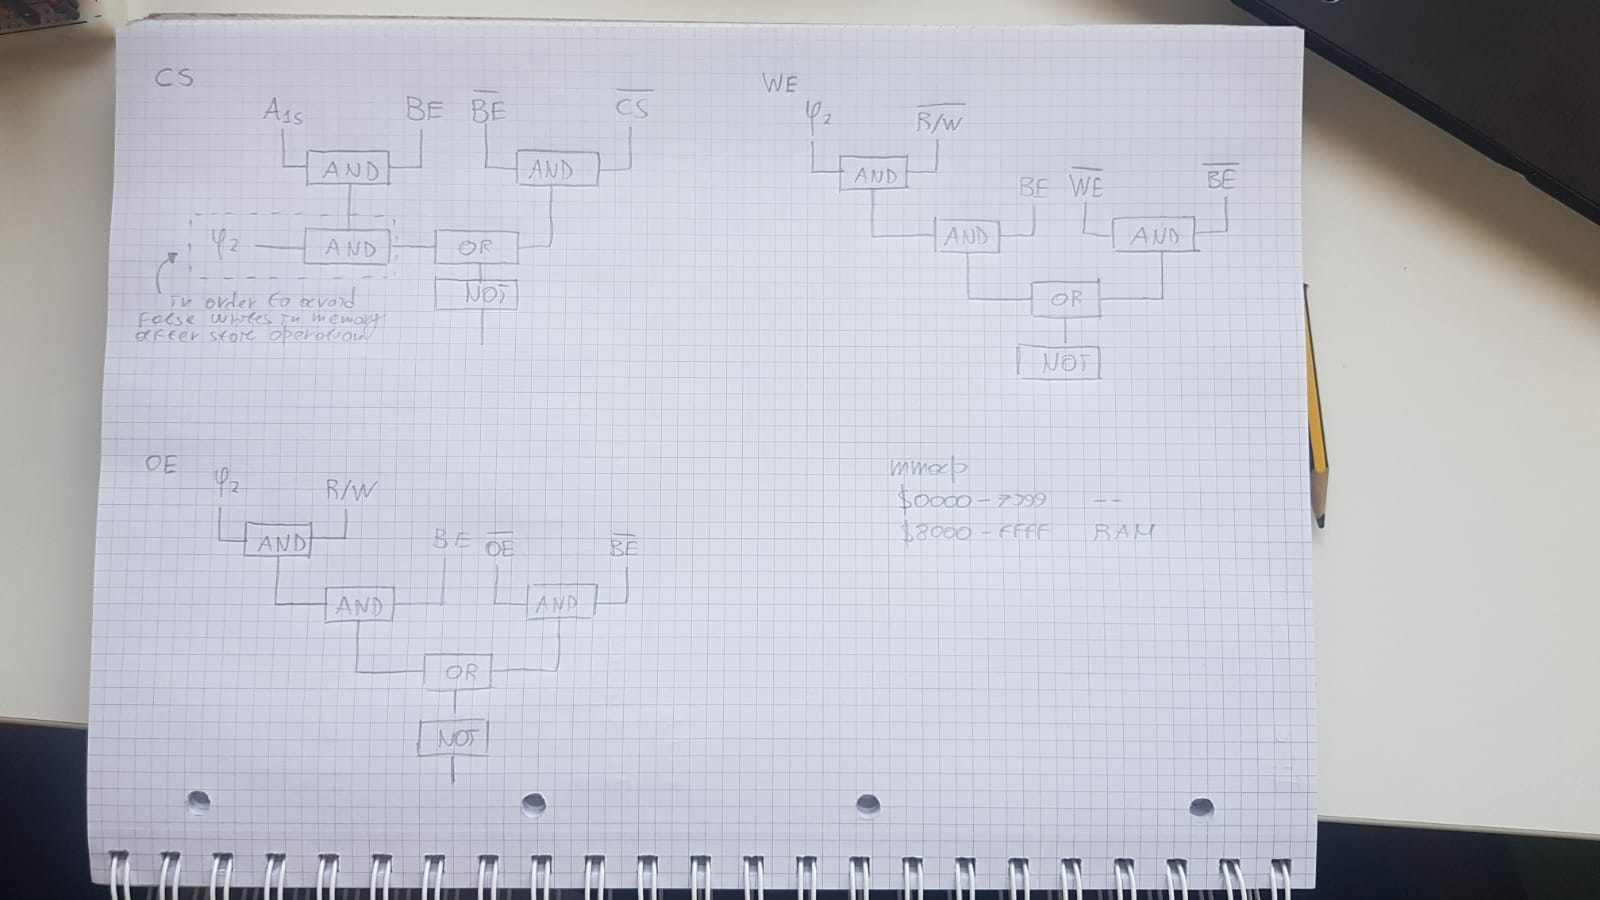 CS
A15 BE B̅E̅ C̅S̅
AND AND
φ2 AND OR
NOT
in order to avoid
false writes in memory
after store operation
WE
φ2 R̅/̅W̅
AND BE W̅E̅ B̅E̅
AND AND
OR
NOT
OE
φ2 R/W
AND BE O̅E̅ B̅E̅
AND AND
OR
NOT
mmap
$0000 - --
$8000 - FFFF RAM